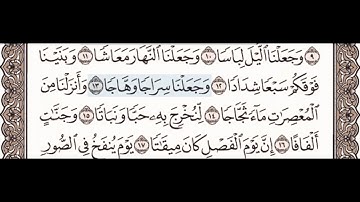 ٩ وَجَعَلْنَا ٱلَّيْلَ لِبَاسًا ١٠ وَجَعَلْنَا ٱلنَّهَارَ مَعَاشًا ١١ وَبَنَيْنَا
فَوْقَكُمْ سَبْعًا شِدَادًا ١٢ وَجَعَلْنَا سِرَاجًا وَهَّاجًا ١٣ وَأَنزَلْنَا مِنَ
ٱلْمُعْصِرَٰتِ مَآءً ثَجَّاجًا ١٤ لِّنُخْرِجَ بِهِۦ حَبًّا وَنَبَاتًا ١٥ وَجَنَّٰتٍ
أَلْفَافًا ١٦ إِنَّ يَوْمَ ٱلْفَصْلِ كَانَ مِيقَٰتًا ١٧ يَوْمَ يُنفَخُ فِى ٱلصُّورِ